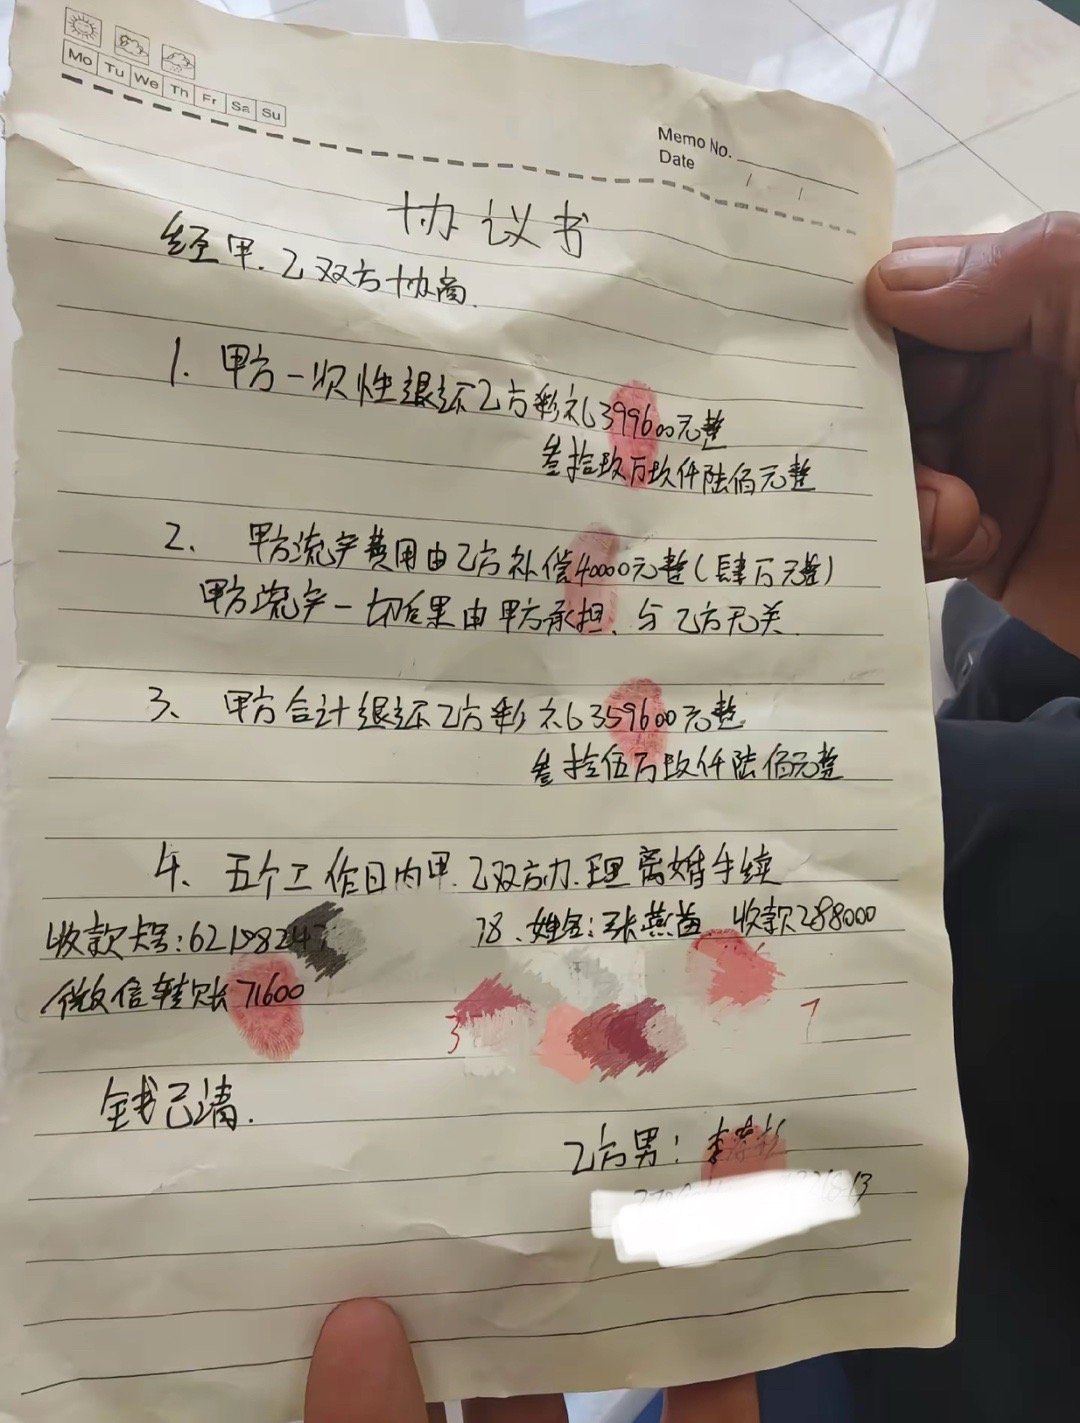 Mo Tu We Th Fr Sa Su
Memo No.
Date / /
协议书
经甲.乙双方协商.
1. 甲方一次性退还乙方彩礼399600元整
叁拾玖万玖仟陆佰元整
2、 甲方流产费用由乙方补偿40000元整(肆万元整)
甲方流产一切后果由甲方承担、与乙方无关.
3、 甲方合计退还乙方彩礼359600元整
叁拾伍万玖仟陆佰元整
4、五个工作日内甲.乙双方办理离婚手续
收款卡号:6219824 78、姓名:张燕苗 收款288000
微信转账71600
钱已清.
乙方男: 李